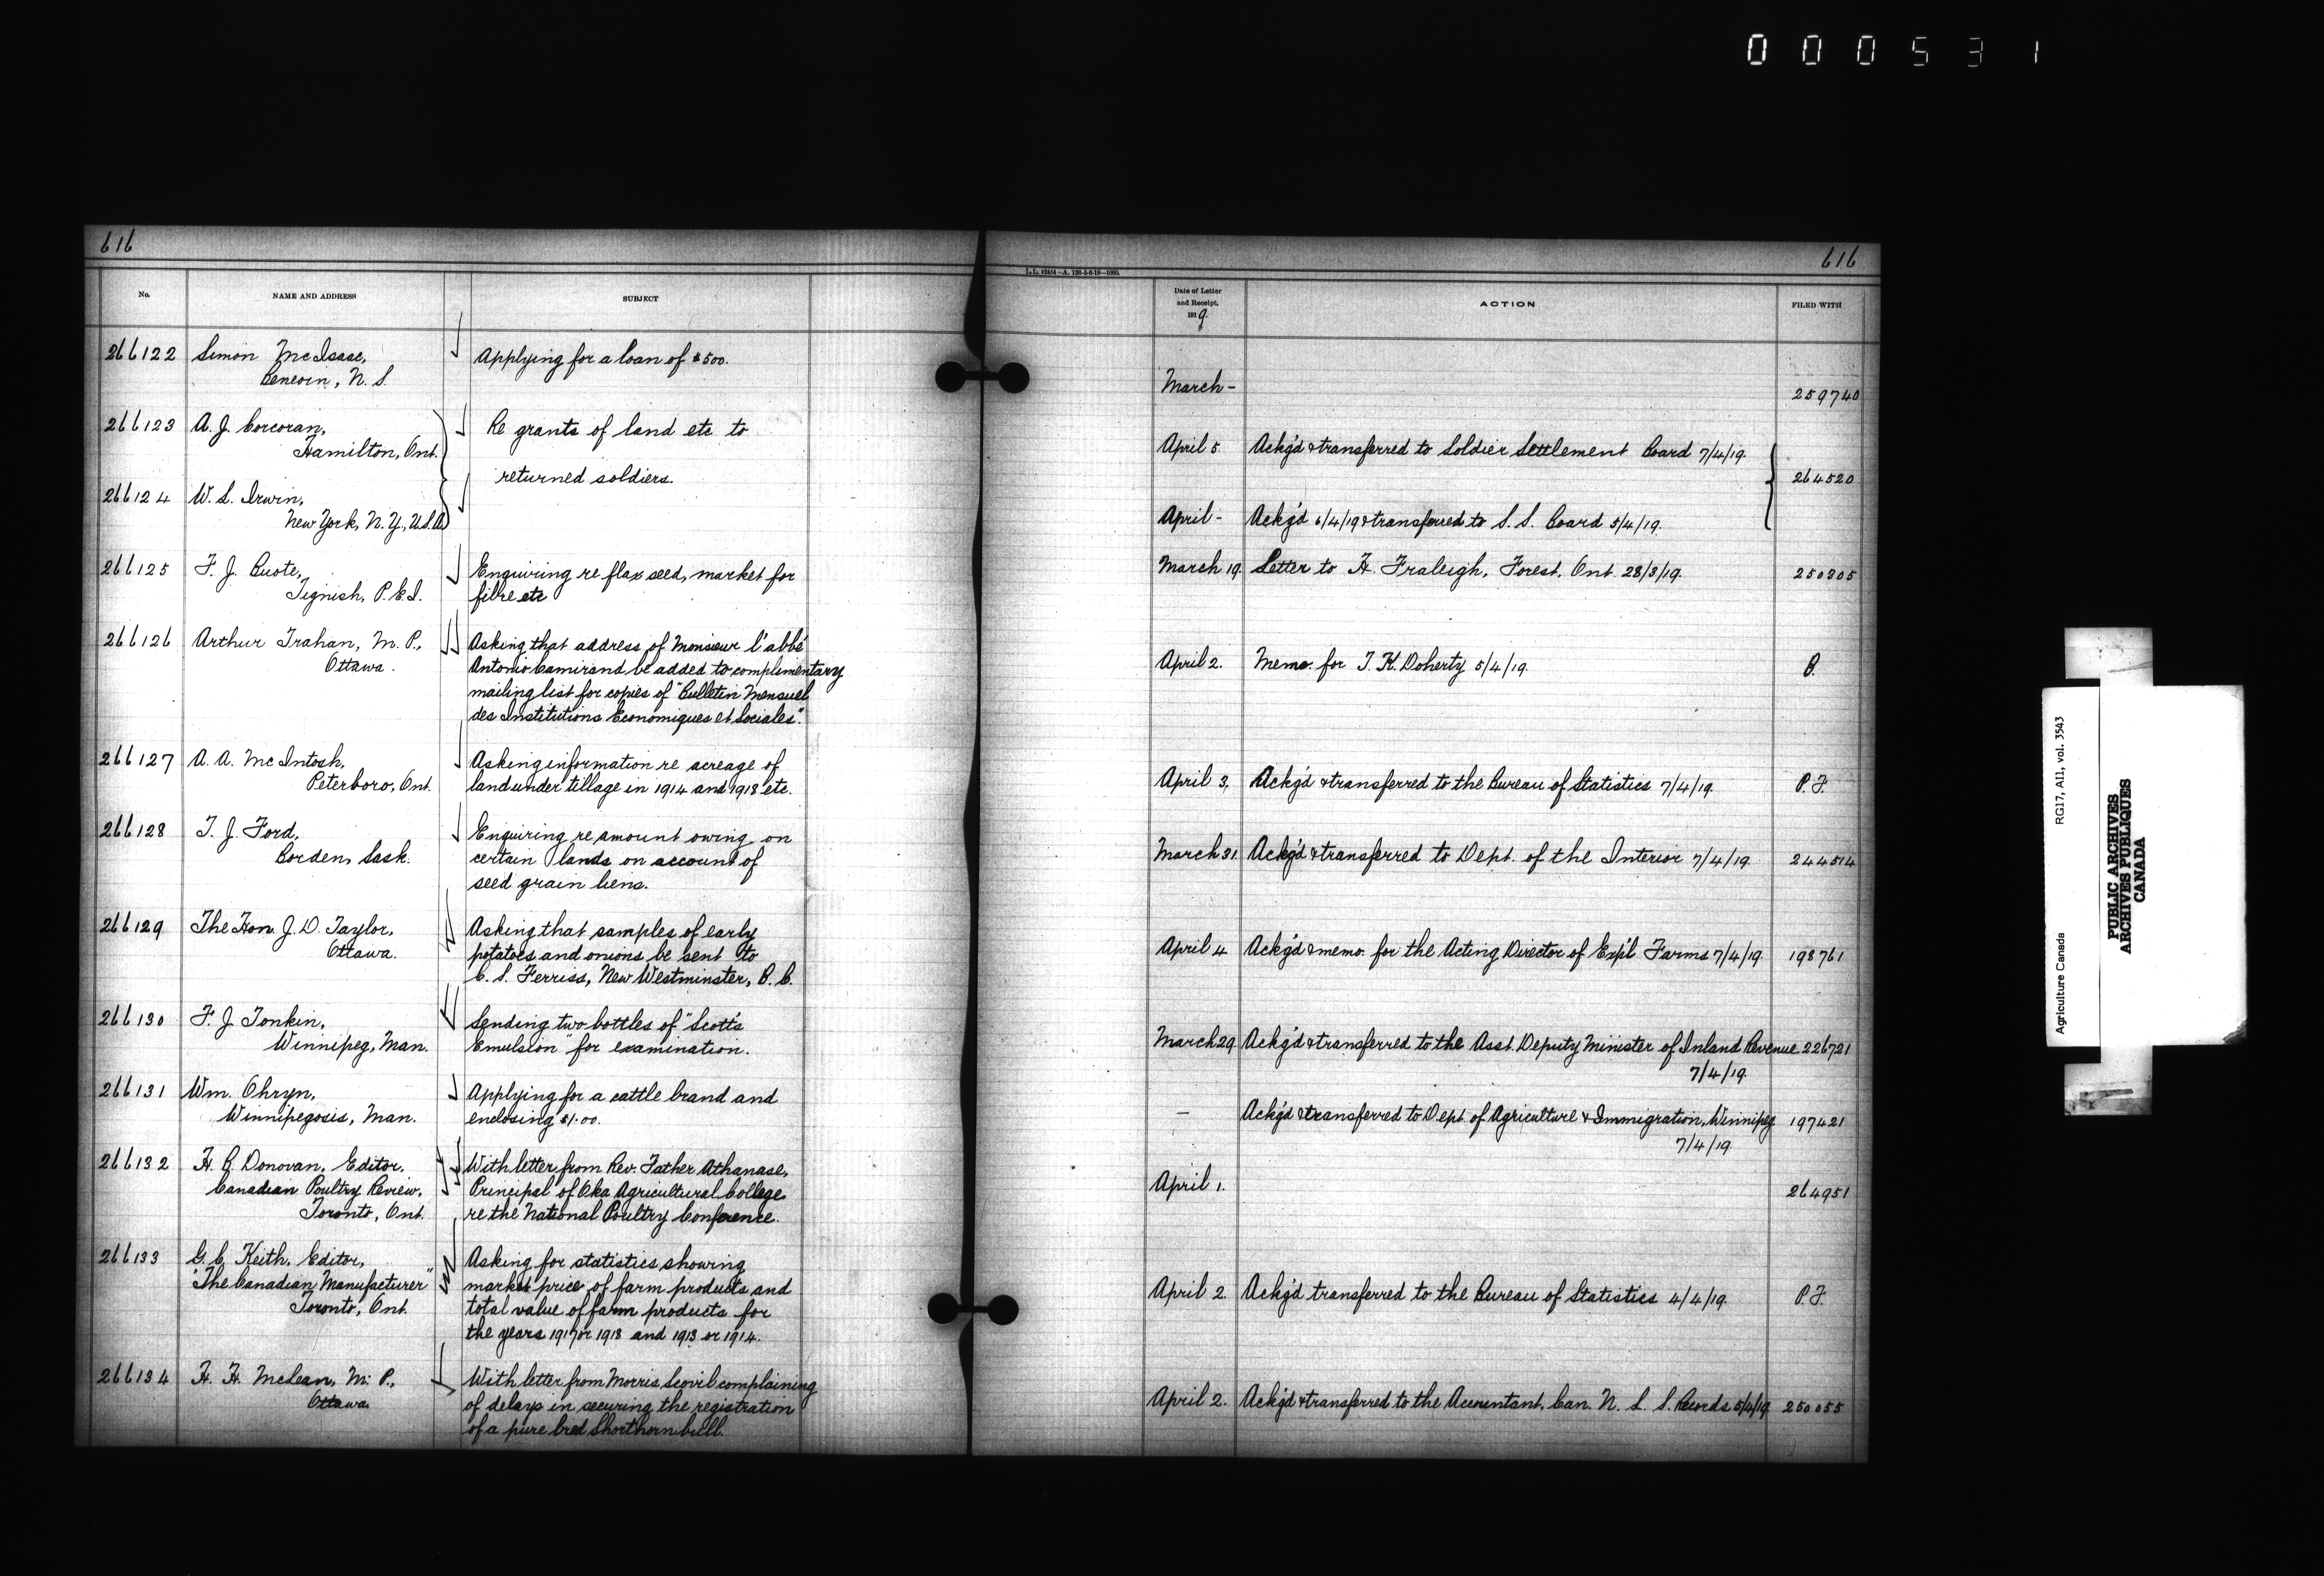 000531
616
No.
NAME AND ADDRESS
SUBJECT
266122
Simon McIsaac,
N. S.
Applying for a loan of $500.
266123
A. J. Corcoran,
Hamilton, Ont.
Re grants of land etc to
returned soldiers.
266124
W. S. Irwin,
New York, N.Y., U.S.A.
266125
F. J. Buote,
Tignish, P.E.I.
Enquiring re flax seed, market for
fibre etc
266126
Arthur Trahan, M. P.,
Ottawa.
Asking that address of Monsieur l'abbé
Antonio Camirand be added to complimentary
mailing list for copies of "Bulletin Mensuel
des Institutions Economiques et Sociales".
266127
A. A. McIntosh,
Peterboro, Ont.
Asking information re acreage of
land under tillage in 1914 and 1918 etc.
266128
T. J. Ford,
Borden, Sask.
Enquiring re amount owing on
certain lands on account of
seed grain liens.
266129
The Hon. J. D. Taylor,
Ottawa.
Asking that samples of early
potatoes and onions be sent to
C. S. Ferriss, New Westminster, B. C.
266130
F. J. Tonkin,
Winnipeg, Man.
Sending two bottles of "Scott's
Emulsion" for examination.
266131
Wm. Ohryn,
Winnipegosis, Man.
Applying for a cattle brand and
enclosing $1.00.
266132
H. B. Donovan, Editor,
Canadian Poultry Review,
Toronto, Ont.
With letter from Rev. Father Athanase,
Principal of Oka Agricultural College
re the National Poultry Conference.
266133
G. C. Keith, Editor,
"The Canadian Manufacturer"
Toronto, Ont.
Asking for statistics showing
market price of farm products and
total value of farm products for
the years 1917 or 1918 and 1913 or 1914.
266134
H. H. McLean, M. P.,
Ottawa.
With letter from Morris Scovil complaining
of delays in securing the registration
of a pure bred Shorthorn bull.
616
L.L. 62434-A. 138-5-6-18-1000.
Date of Letter
and Receipt.
1919
ACTION
FILED WITH
March -
259740
April 5.
Ackg'd & transferred to Soldier Settlement Board 7/4/19.
264520
April -
Ackg'd 6/4/19 & transferred to S. S. Board 5/4/19.
March 19.
Letter to H. Fraleigh, Forest, Ont. 28/3/19.
250305
April 2.
Memo. for T. K. Doherty 5/4/19.
B.
April 3.
Ackg'd & transferred to the Bureau of Statistics 7/4/19.
P. F.
March 31.
Ackg'd & transferred to Dept. of the Interior 7/4/19.
244514
April 4
Ackg'd & memo. for the Acting Director of Exp'l Farms 7/4/19.
198761
March 29.
Ackg'd & transferred to the Asst. Deputy Minister of Inland Revenue
7/4/19.
226721
-
Ackg'd & transferred to Dept of Agriculture & Immigration, Winnipeg
7/4/19.
197421
April 1.
264951
April 2.
Ackg'd transferred to the Bureau of Statistics 4/4/19.
P. F.
April 2.
Ackg'd & transferred to the Accountant, Can. N. L. S. Records 5/4/19.
250055
Agriculture Canada
RG17, AII, vol. 3543
PUBLIC ARCHIVES
ARCHIVES PUBLIQUES
CANADA